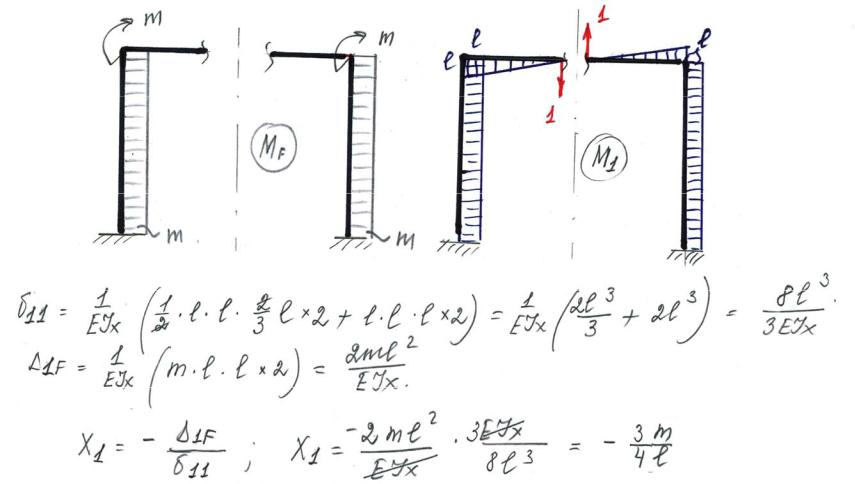 m m l l 1 l
1
M_F M_1
m m
δ11 = 1/EJx (1/2 · l · l · 2/3 l × 2 + l · l · l × 2) = 1/EJx (2l³/3 + 2l³) = 8l³/3EJx.
Δ1F = 1/EJx (m · l · l × 2) = 2ml²/EJx.
X1 = - Δ1F/δ11 ; X1 = -2ml²/EJx · 3EJx/8l³ = - 3m/4l